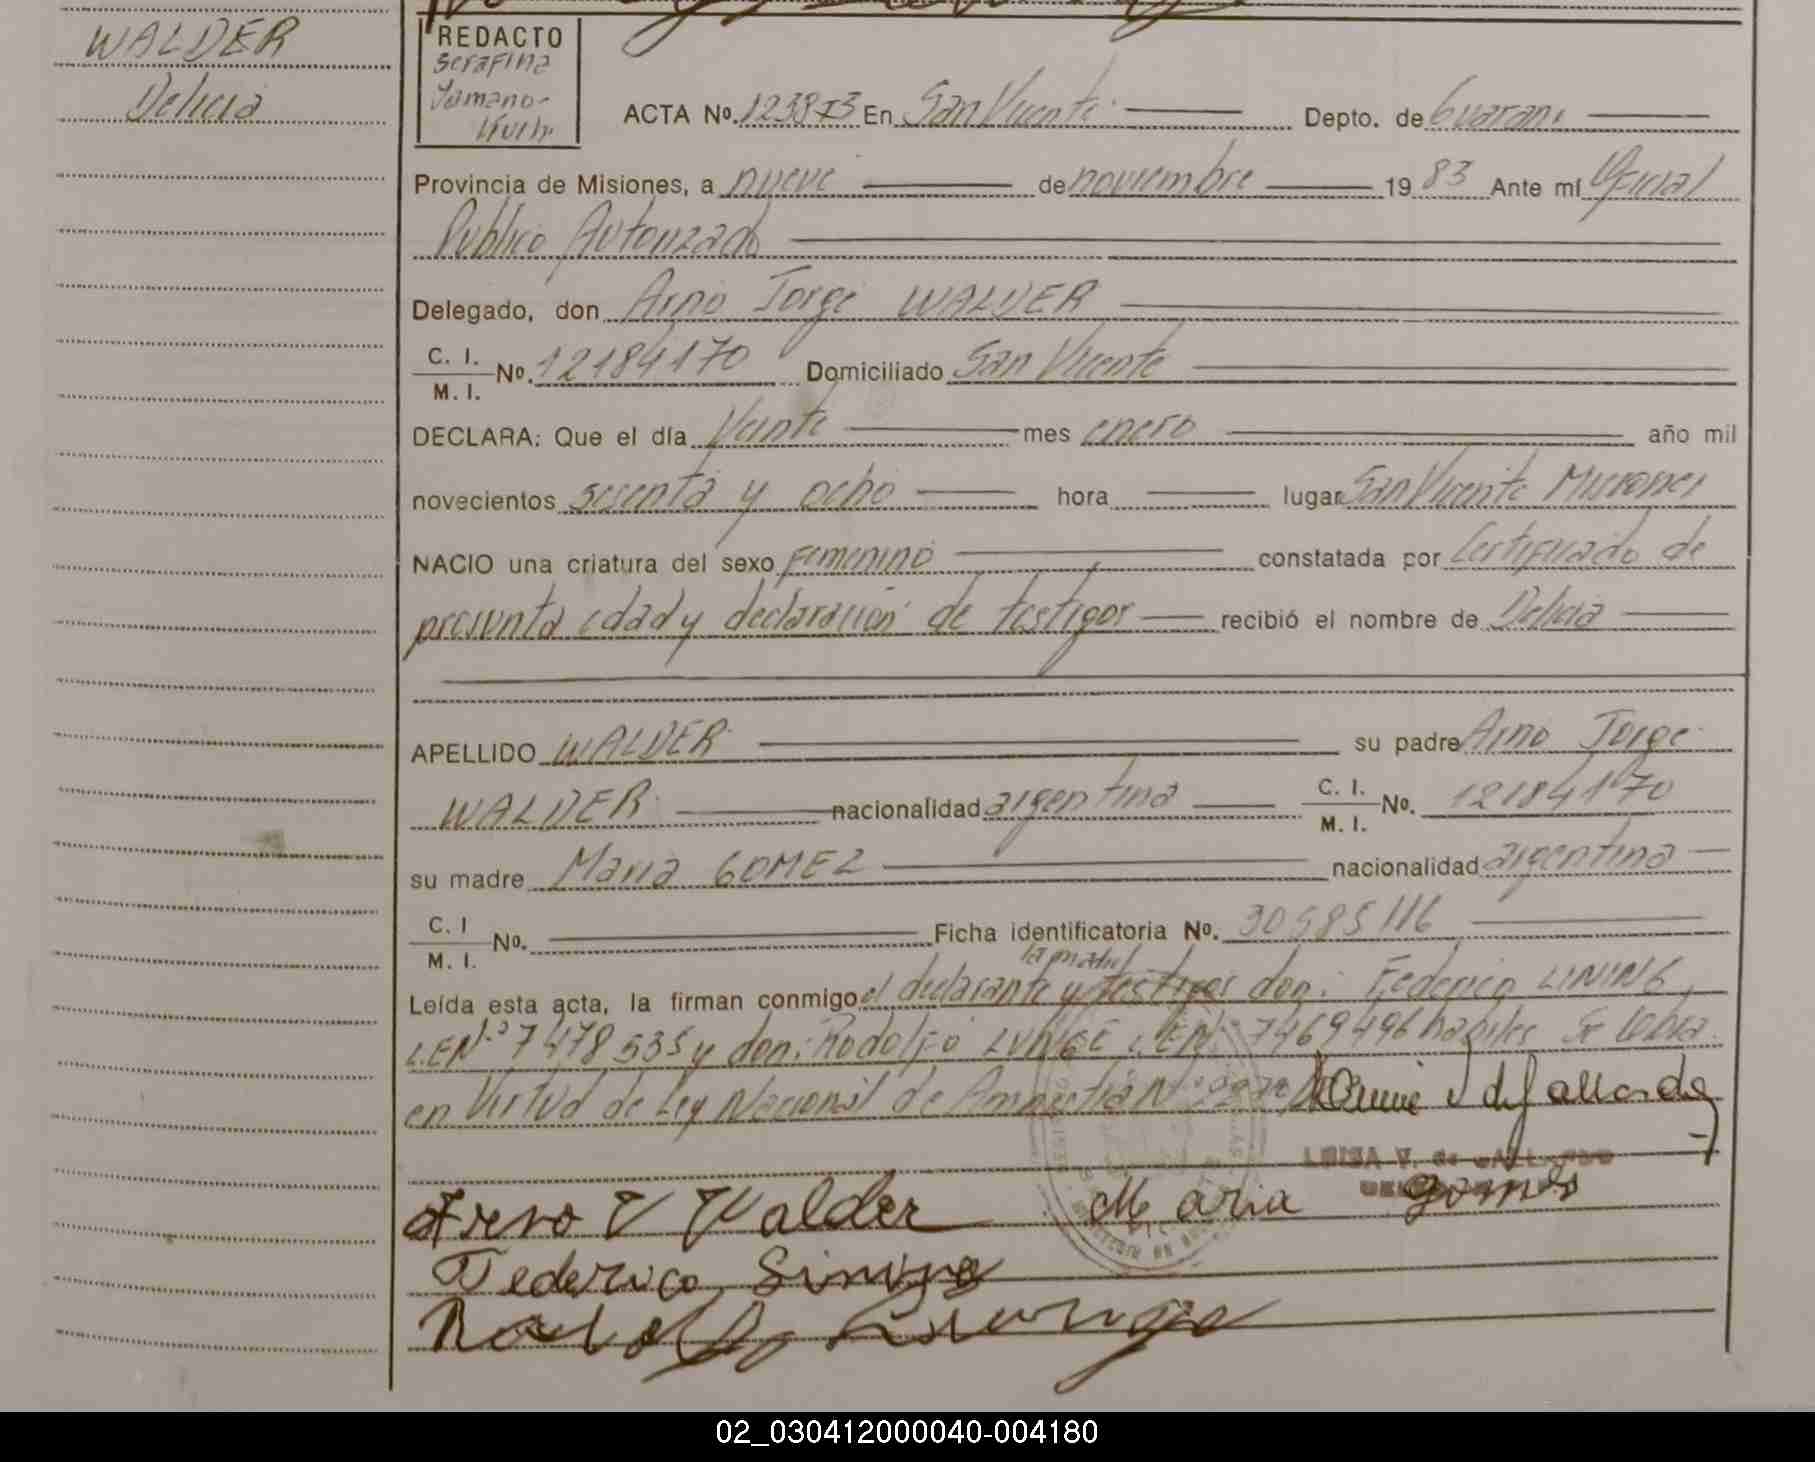 WALDER
Delicia
REDACTO
Serafina
ACTA Nº. En San Vicente Depto. de Guarani
Provincia de Misiones, a nueve de noviembre 19 83 Ante mí Oficial
Publico Autorizado
Delegado, don Arno Jorge WALDER
C. I.
M. I. Nº. 12184170 Domiciliado San Vicente
DECLARA: Que el día Veinte mes enero año mil
novecientos sesenta y ocho hora lugar San Vicente Misiones
NACIO una criatura del sexo femenino constatada por Certificado de
presunta edad y declaración de testigos recibió el nombre de Delicia
APELLIDO WALDER su padre Arno Jorge
WALDER nacionalidad argentina C. I.
M. I. Nº. 12184170
su madre Maria GOMEZ nacionalidad argentina
C. I
M. I. Nº. Ficha identificatoria Nº. 30585116
la madre
Leída esta acta, la firman conmigo el declarante y testigos don: Federico LINING,
L.E Nº 7478535 y don: Rodolfo LUNGE L.E Nº 7469496 habiles Se labra
en Virtud de Ley Nacional de Amnistia Nº
LUISA V. de GALLARDO
Arno J Walder Maria Gomes
Federico Lining
Rodolfo Lunge
02_030412000040-004180